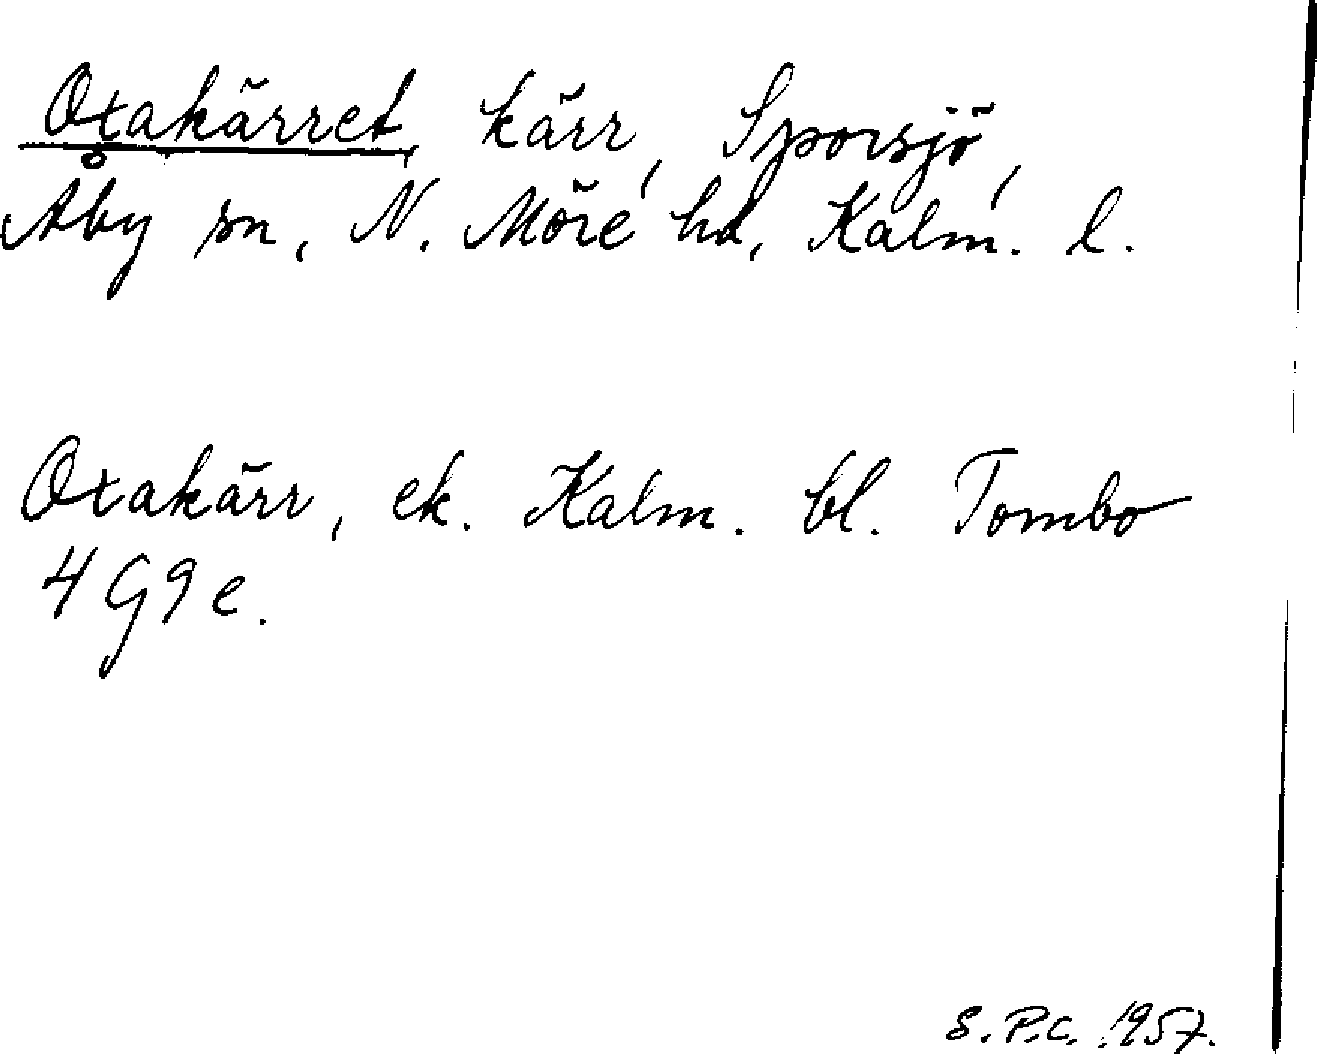 Oxakärret, kärr, Sporsjö,
Åby sn, N. Möre hd, Kalm. l.
Oxakärr, ek. Kalm. bl. Tombo
4 G 9 e.
S.P.C. 1957.